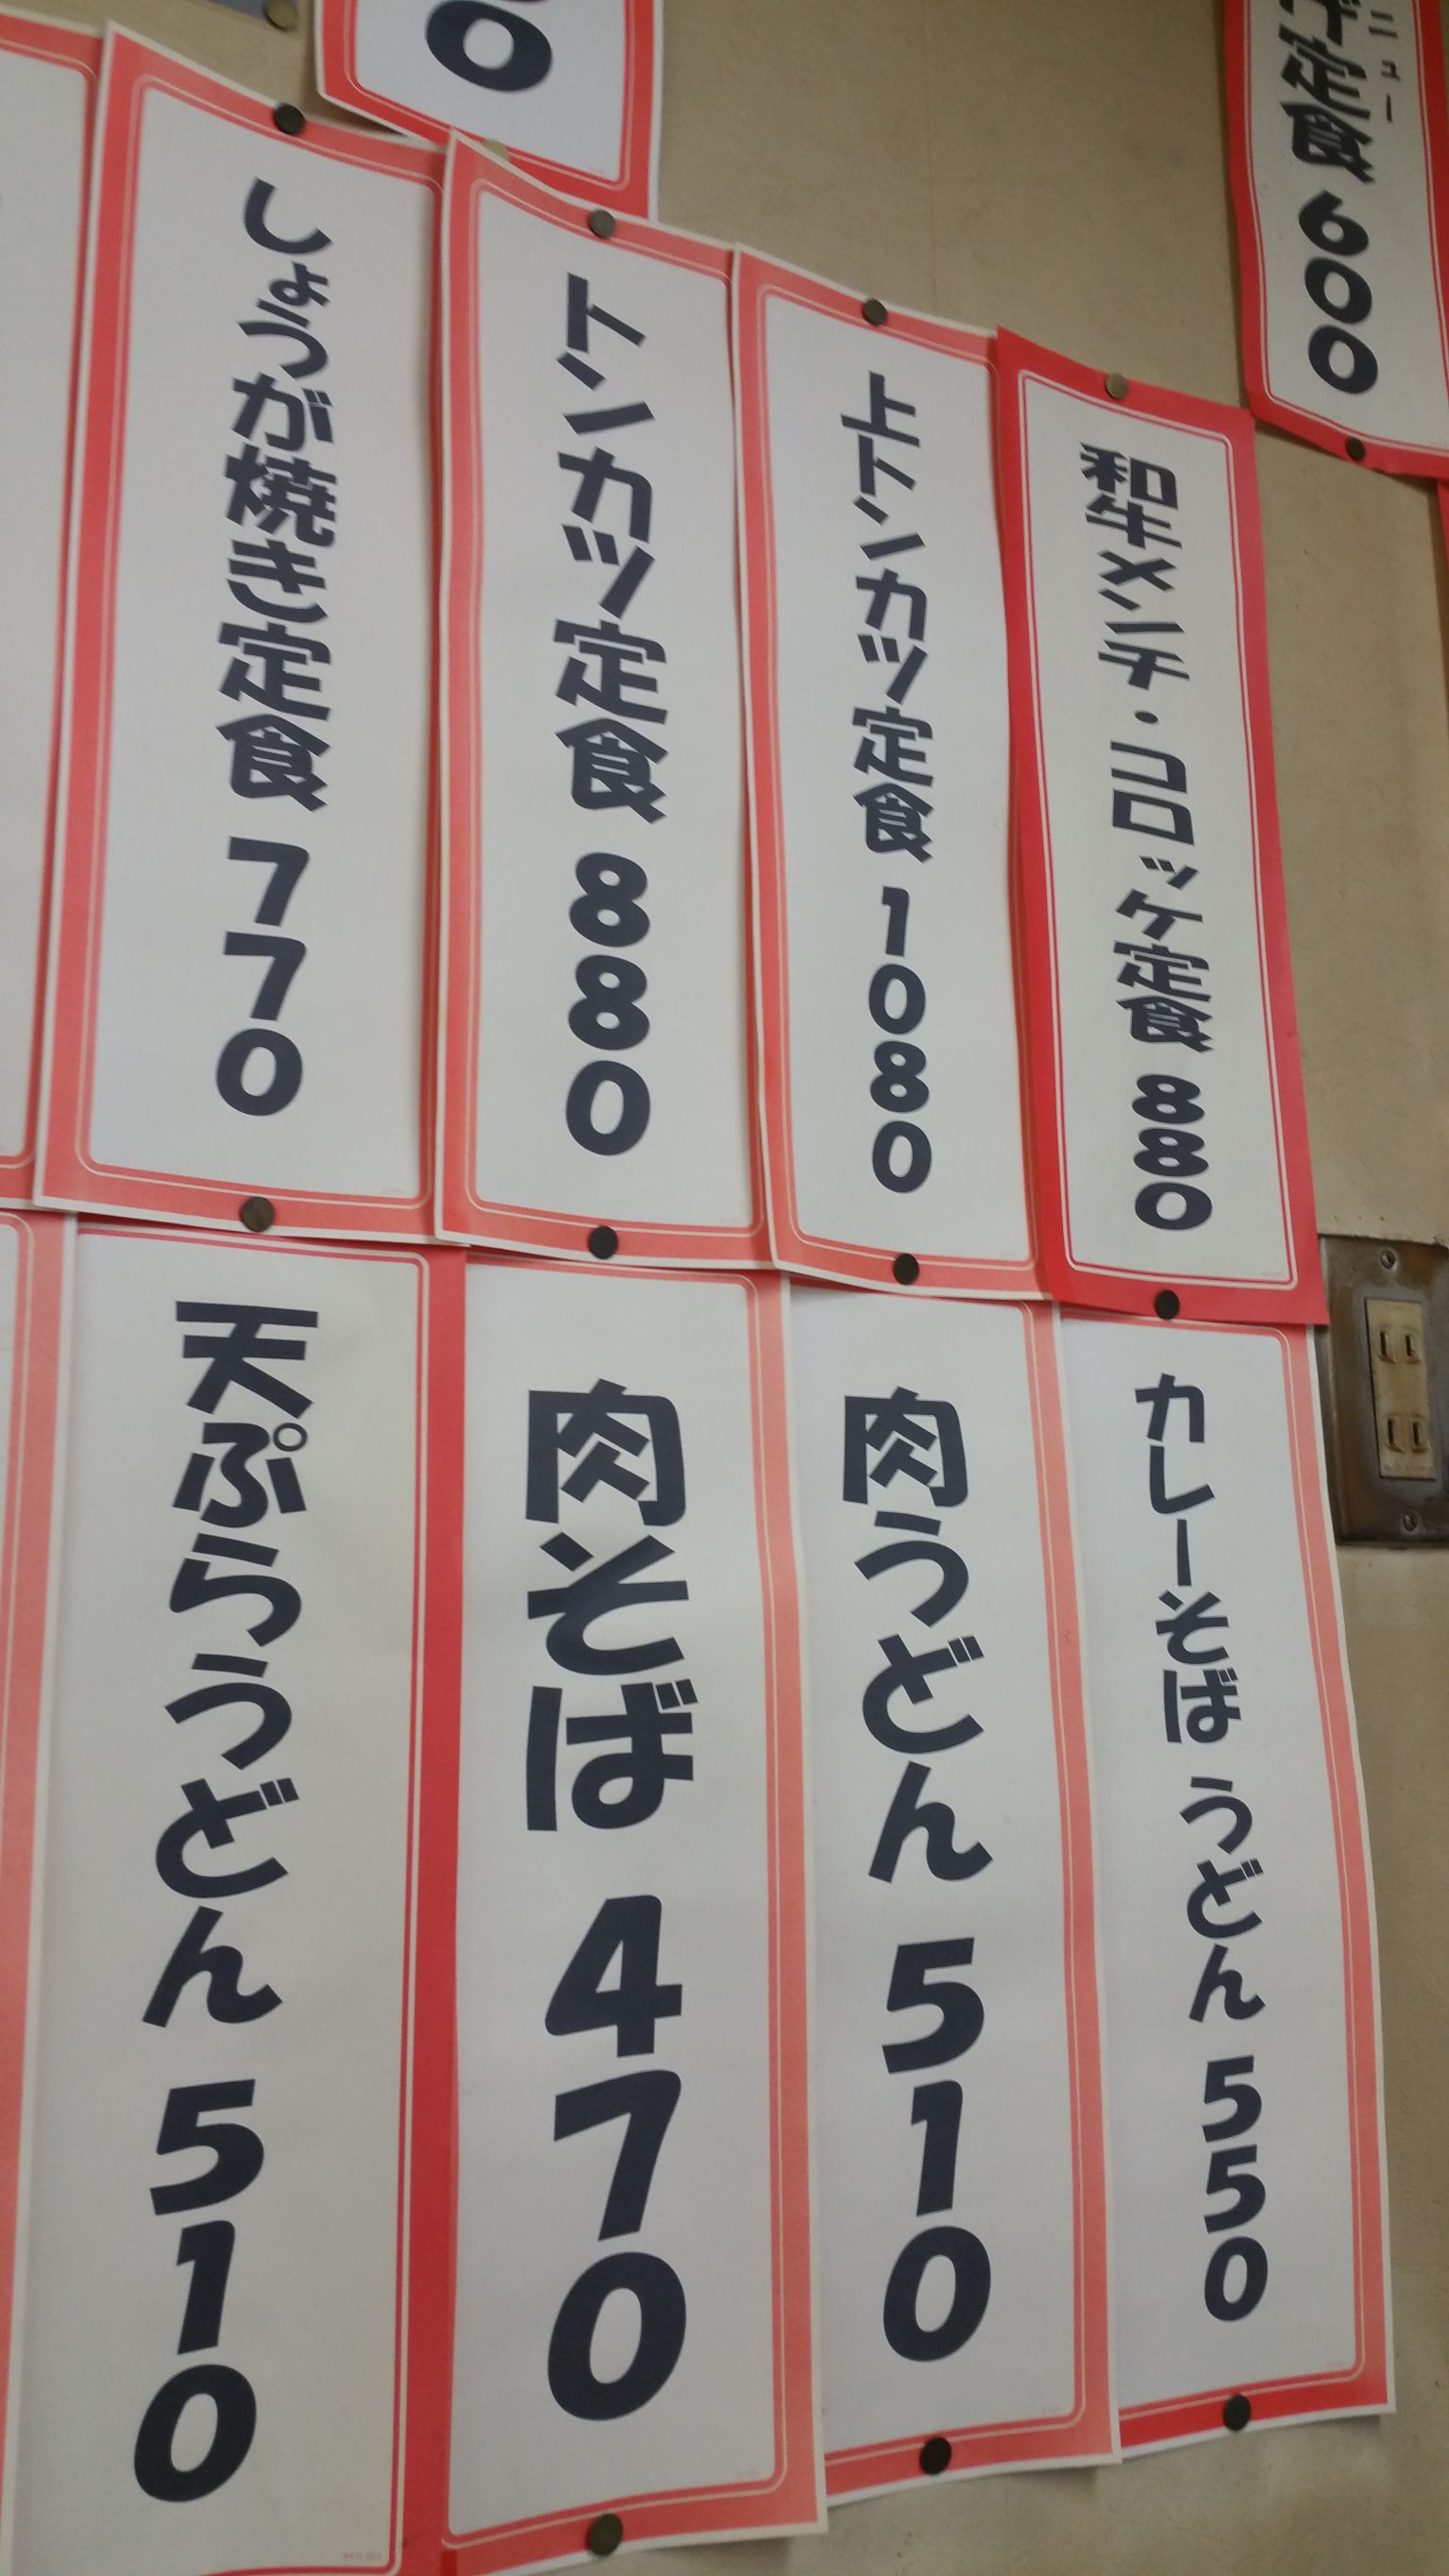 0
ニュー
定食 600
和牛メンチ・コロッケ定食 880
上トンカツ定食 1080
トンカツ定食 880
しょうが焼き定食 770
カレーそば うどん 550
肉うどん 510
肉そば 470
天ぷらうどん 510